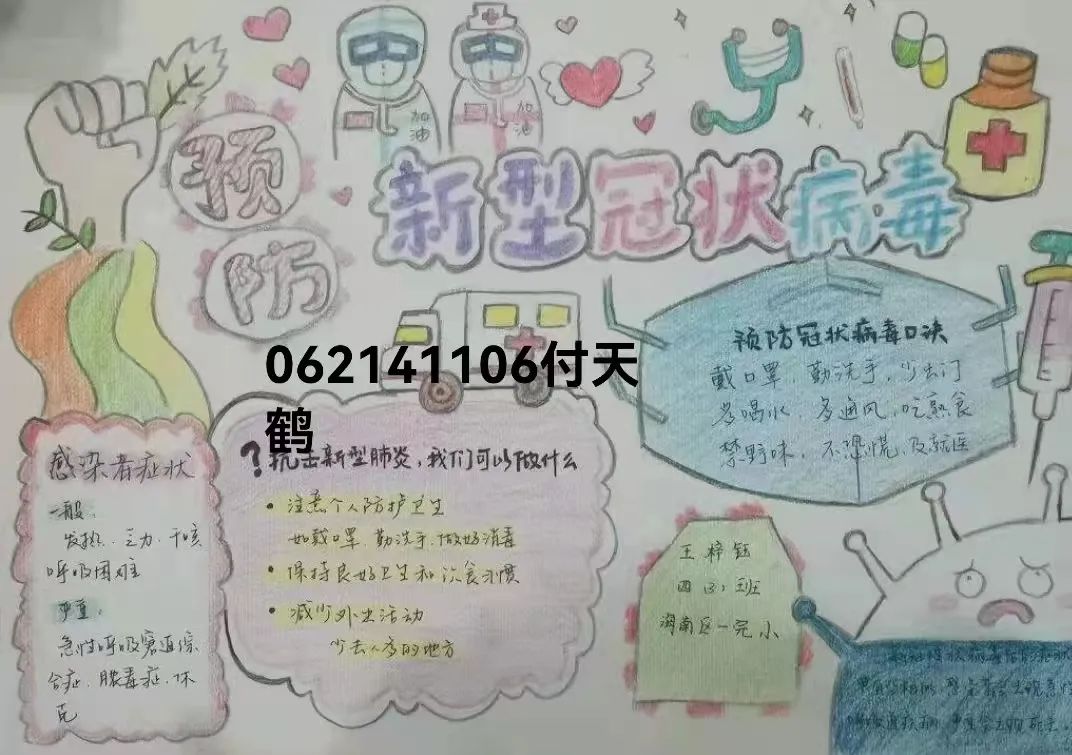 预
防
加油
加油
新型冠状病毒
062141106付天
鹤
预防冠状病毒口诀
戴口罩、勤洗手、少出门
多喝水、多通风、吃熟食
禁野味、不恐慌、及就医
感染者症状
一般:
发热、乏力、干咳
呼吸困难
严重:
急性呼吸窘迫综
合症、脓毒症、休
克
?抗击新型肺炎,我们可以做什么
• 注意个人防护卫生
如戴口罩、勤洗手、做好消毒
• 保持良好卫生和饮食习惯
• 减少外出活动
少去人多的地方
王梓钰
班
海南区一完小